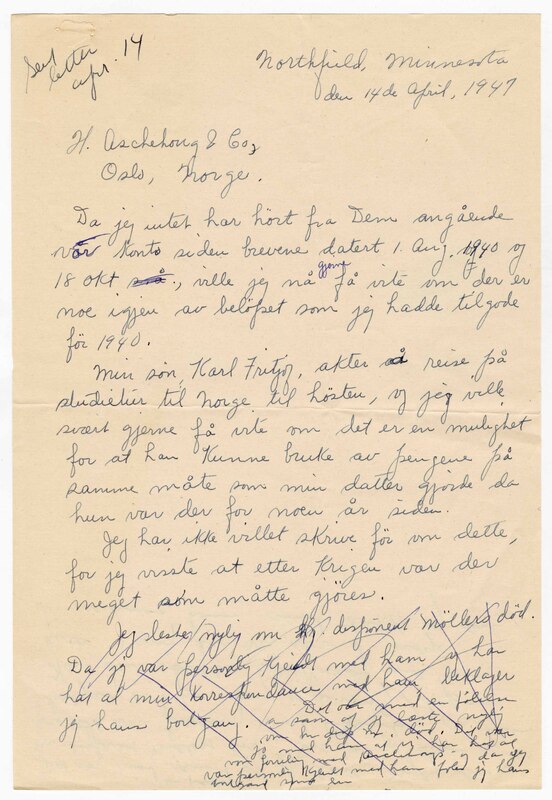 Sent
letter
apr. 14
Northfield, Minnesota
den 14de April, 1947
H. Aschehoug & Co,
Oslo, Norge.
Da jeg intet har hört fra Dem angående
vår Konto siden brevene datert 1 Aug. 1940 og
18 Okt så, ville jeg nå gjerne få vite om der er
noe igjen av belöpet som jeg hadde tilgode
för 1940.
Min sön, Karl Fritjof, akter å reise på
studietur til Norge til hösten, og jeg ville
svært gjerne få vite om det er en mulighet
for at han Kunne bruke av pengene på
samme måte som min datter gjorde da
hun var der for noen år siden.
Jeg har ikke villet skrive för om dette,
for jeg visste at etter Krigen var der
meget som måtte gjöres.
Jeg leste nylig om hr. disponent Möllers död.
Da jeg var personlig Kjendt med ham og har
hat al min Korrespondance med ham beklager
jeg hans bortgang.
Det var med en fölelse
av som jeg læste nylig
om hr. död. Det var
jo med ham at jeg har hat al
min
var personlig Kjendt med ham föler jeg hans
som en